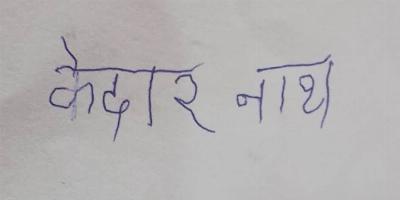 केदार नाथ